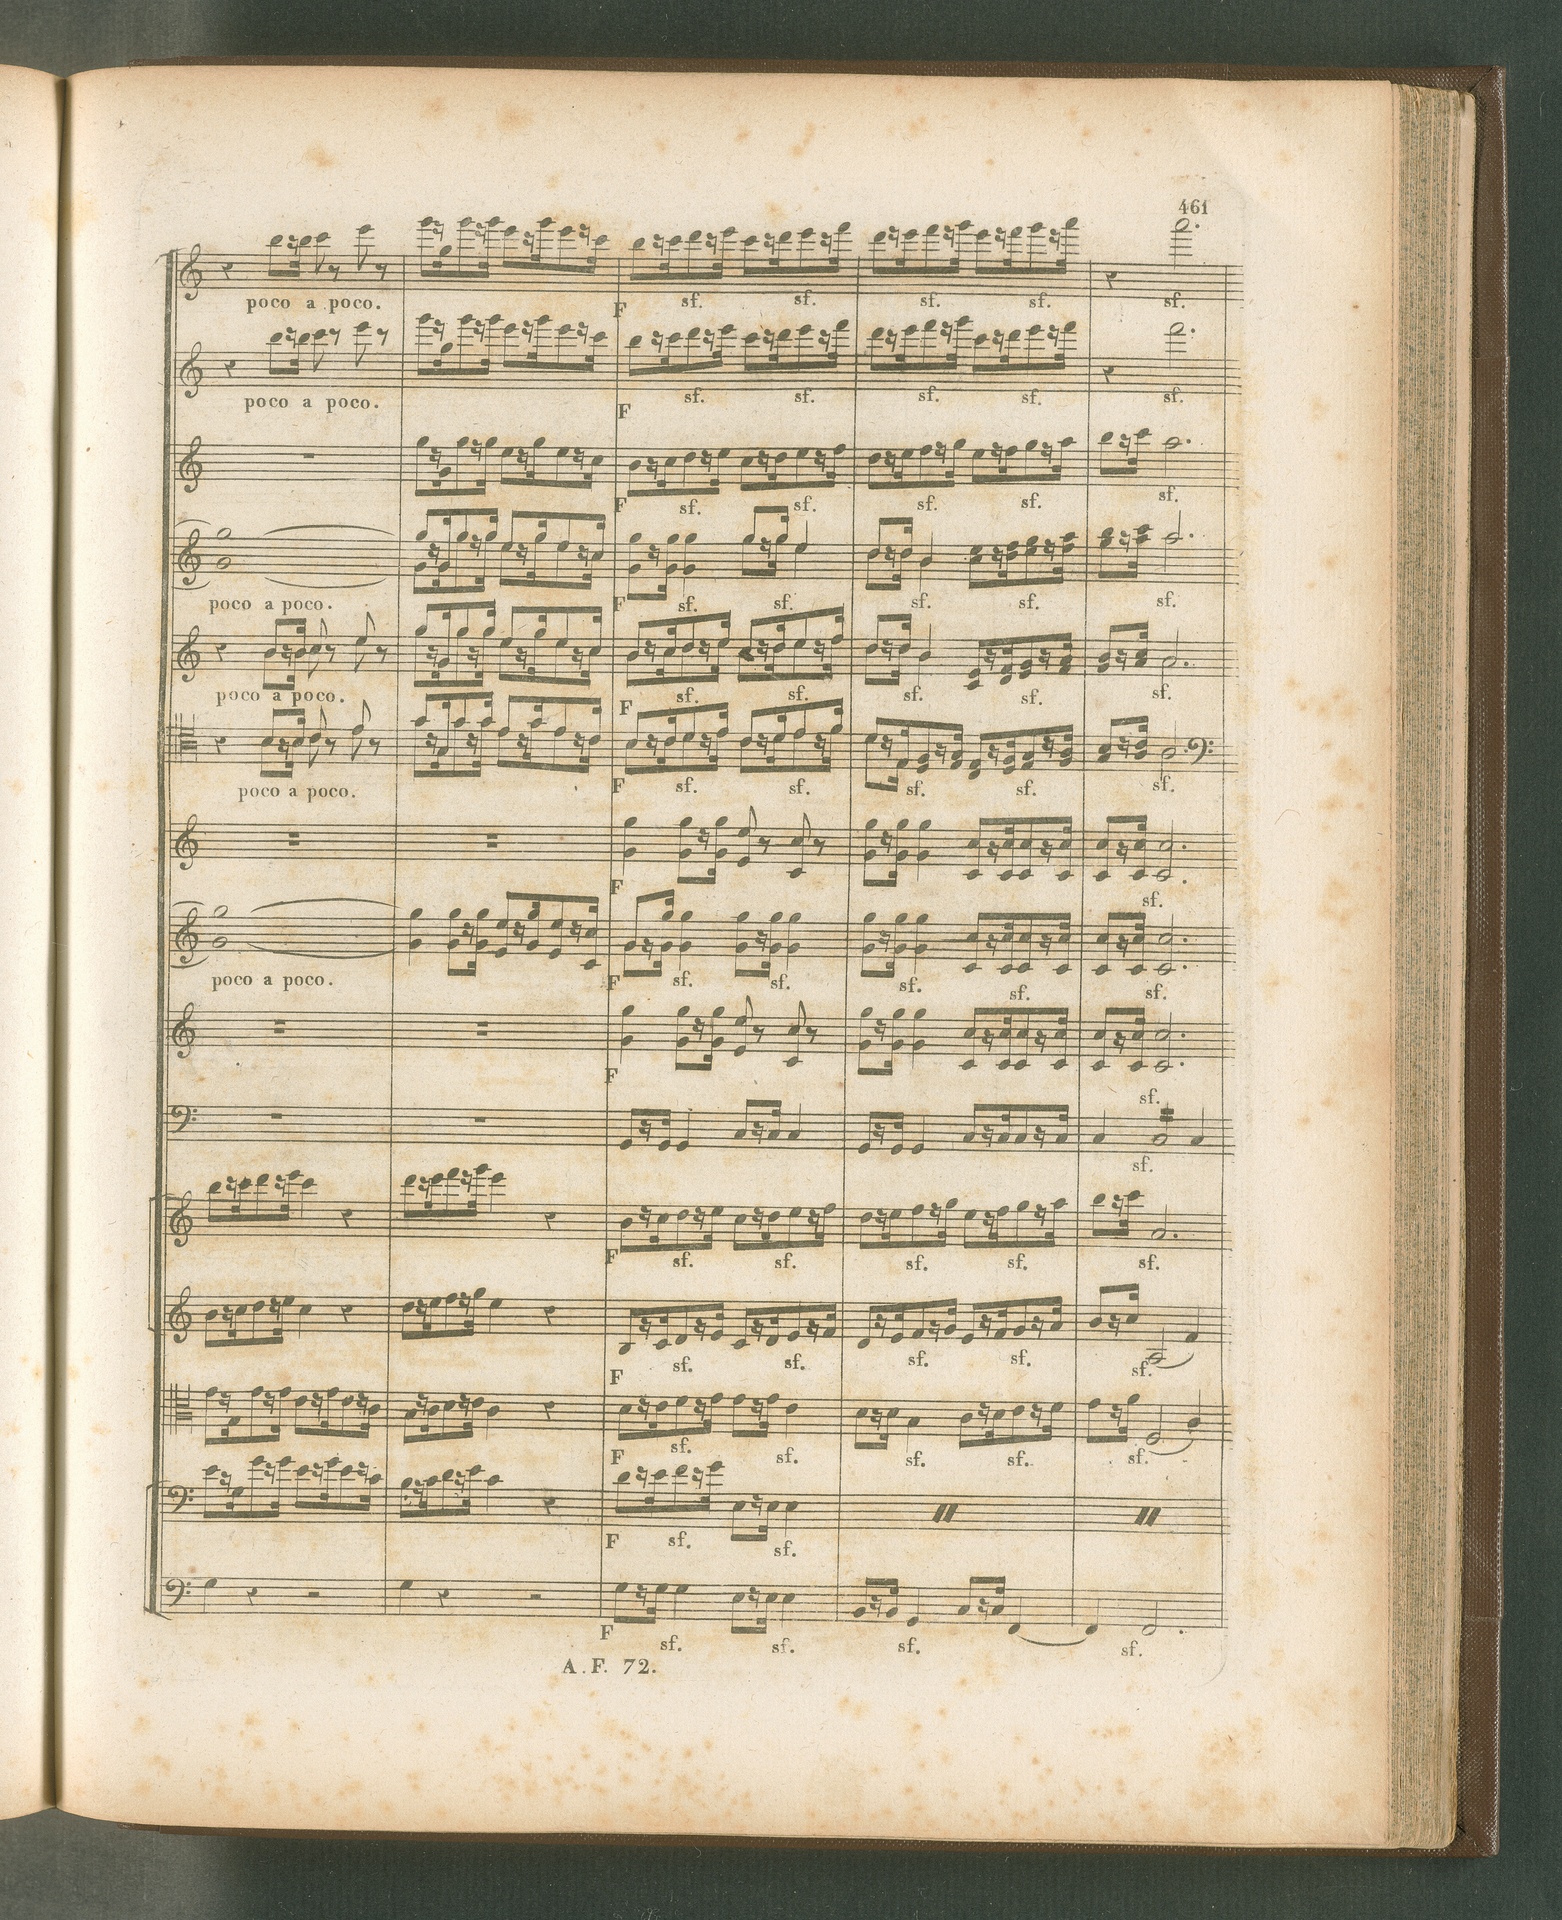 461
poco a poco.
F sf. sf. sf. sf. sf.
poco a poco.
F sf. sf. sf. sf. sf.
F sf. sf. sf. sf. sf.
poco a poco.
F sf. sf. sf. sf. sf.
poco a poco.
F sf. sf. sf. sf. sf.
poco a poco.
F sf. sf. sf. sf. sf.
F sf.
poco a poco.
F sf. sf. sf. sf. sf.
F sf.
sf.
F sf. sf. sf. sf. sf.
F sf. sf. sf. sf. sf.
F sf. sf. sf. sf. sf.
F sf. sf.
F sf. sf. sf. sf.
A.F. 72.